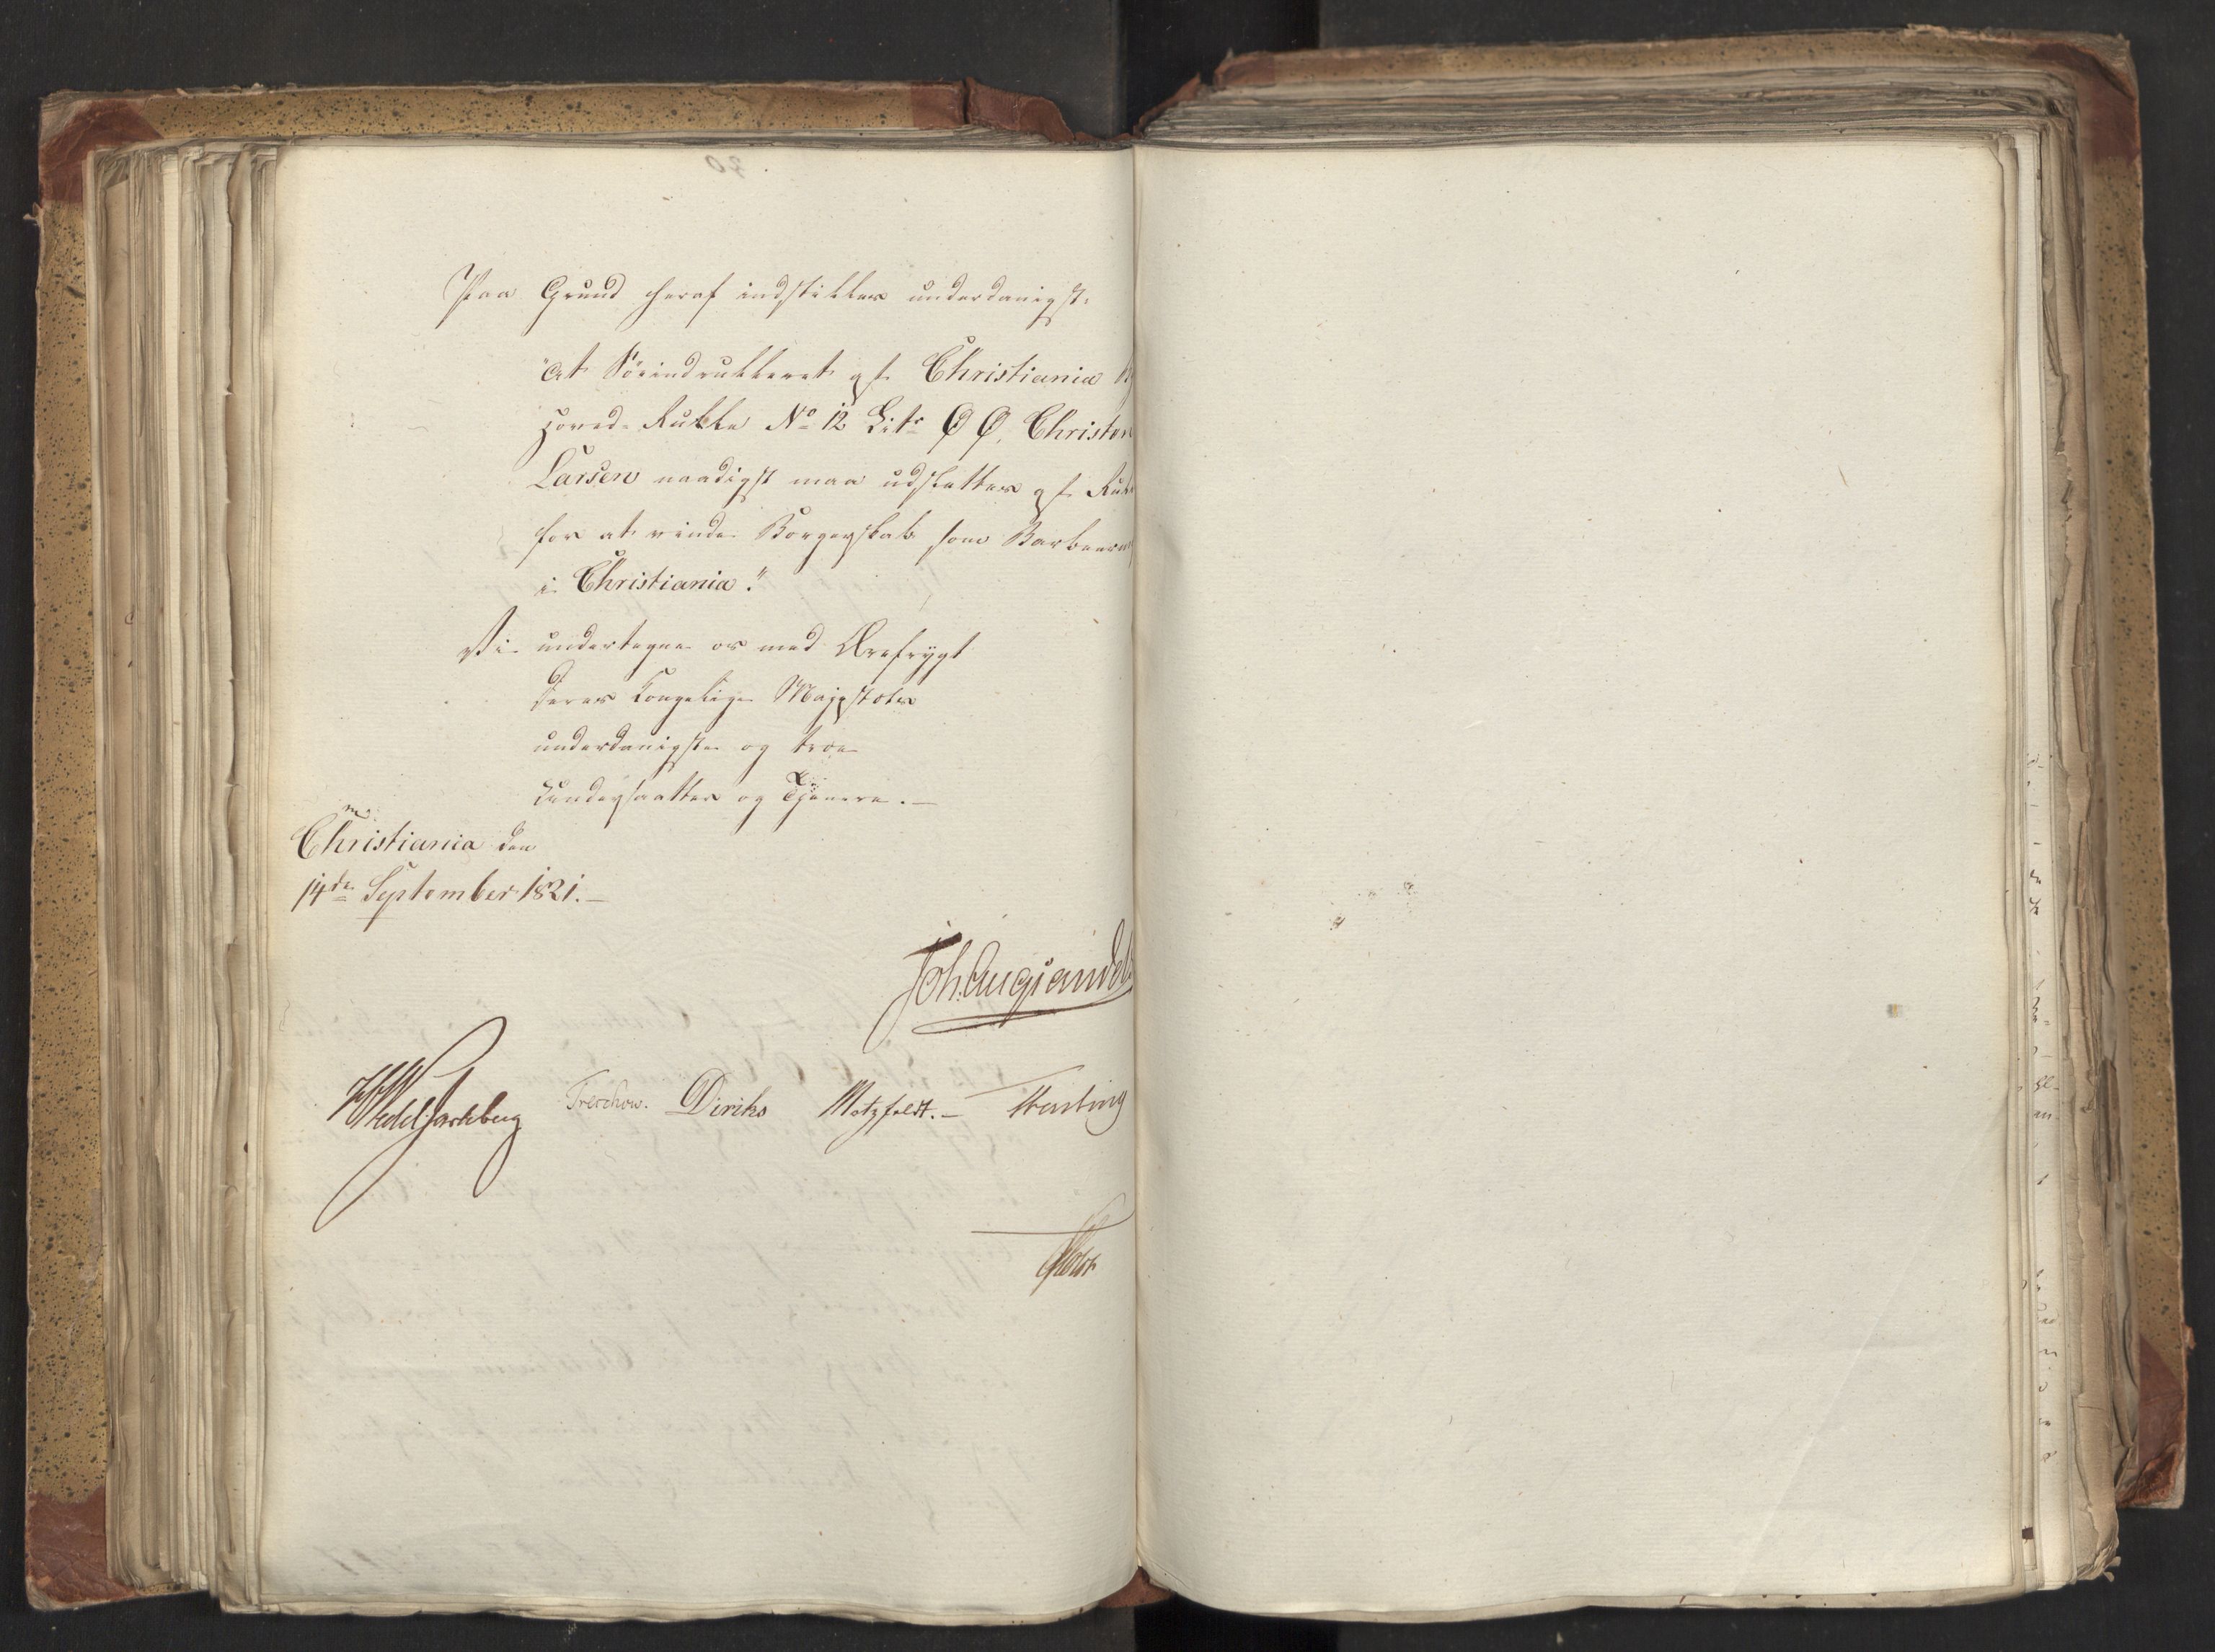 Paa Grund heraf indstilles underdanigst:
"At Söeindrulleret af Christiania
Hoved-Rulle No 12 Litr Ø Ø, Christen
Larsen naadigst maa udslettes af Rullen
for at vinde Borgerskab som Barbeer
i Christiania."
Vi undertegne os med Ærefrygt
Deres Kongelige Majestæts
underdanigste og troe
Undersaatter og Tjenere.—
Christiania den
14de September 1821.—
Joh. Aug. Sandels
HWedelJarlsberg Treschow. Diriks Motzfeldt.— Fasting
Holst